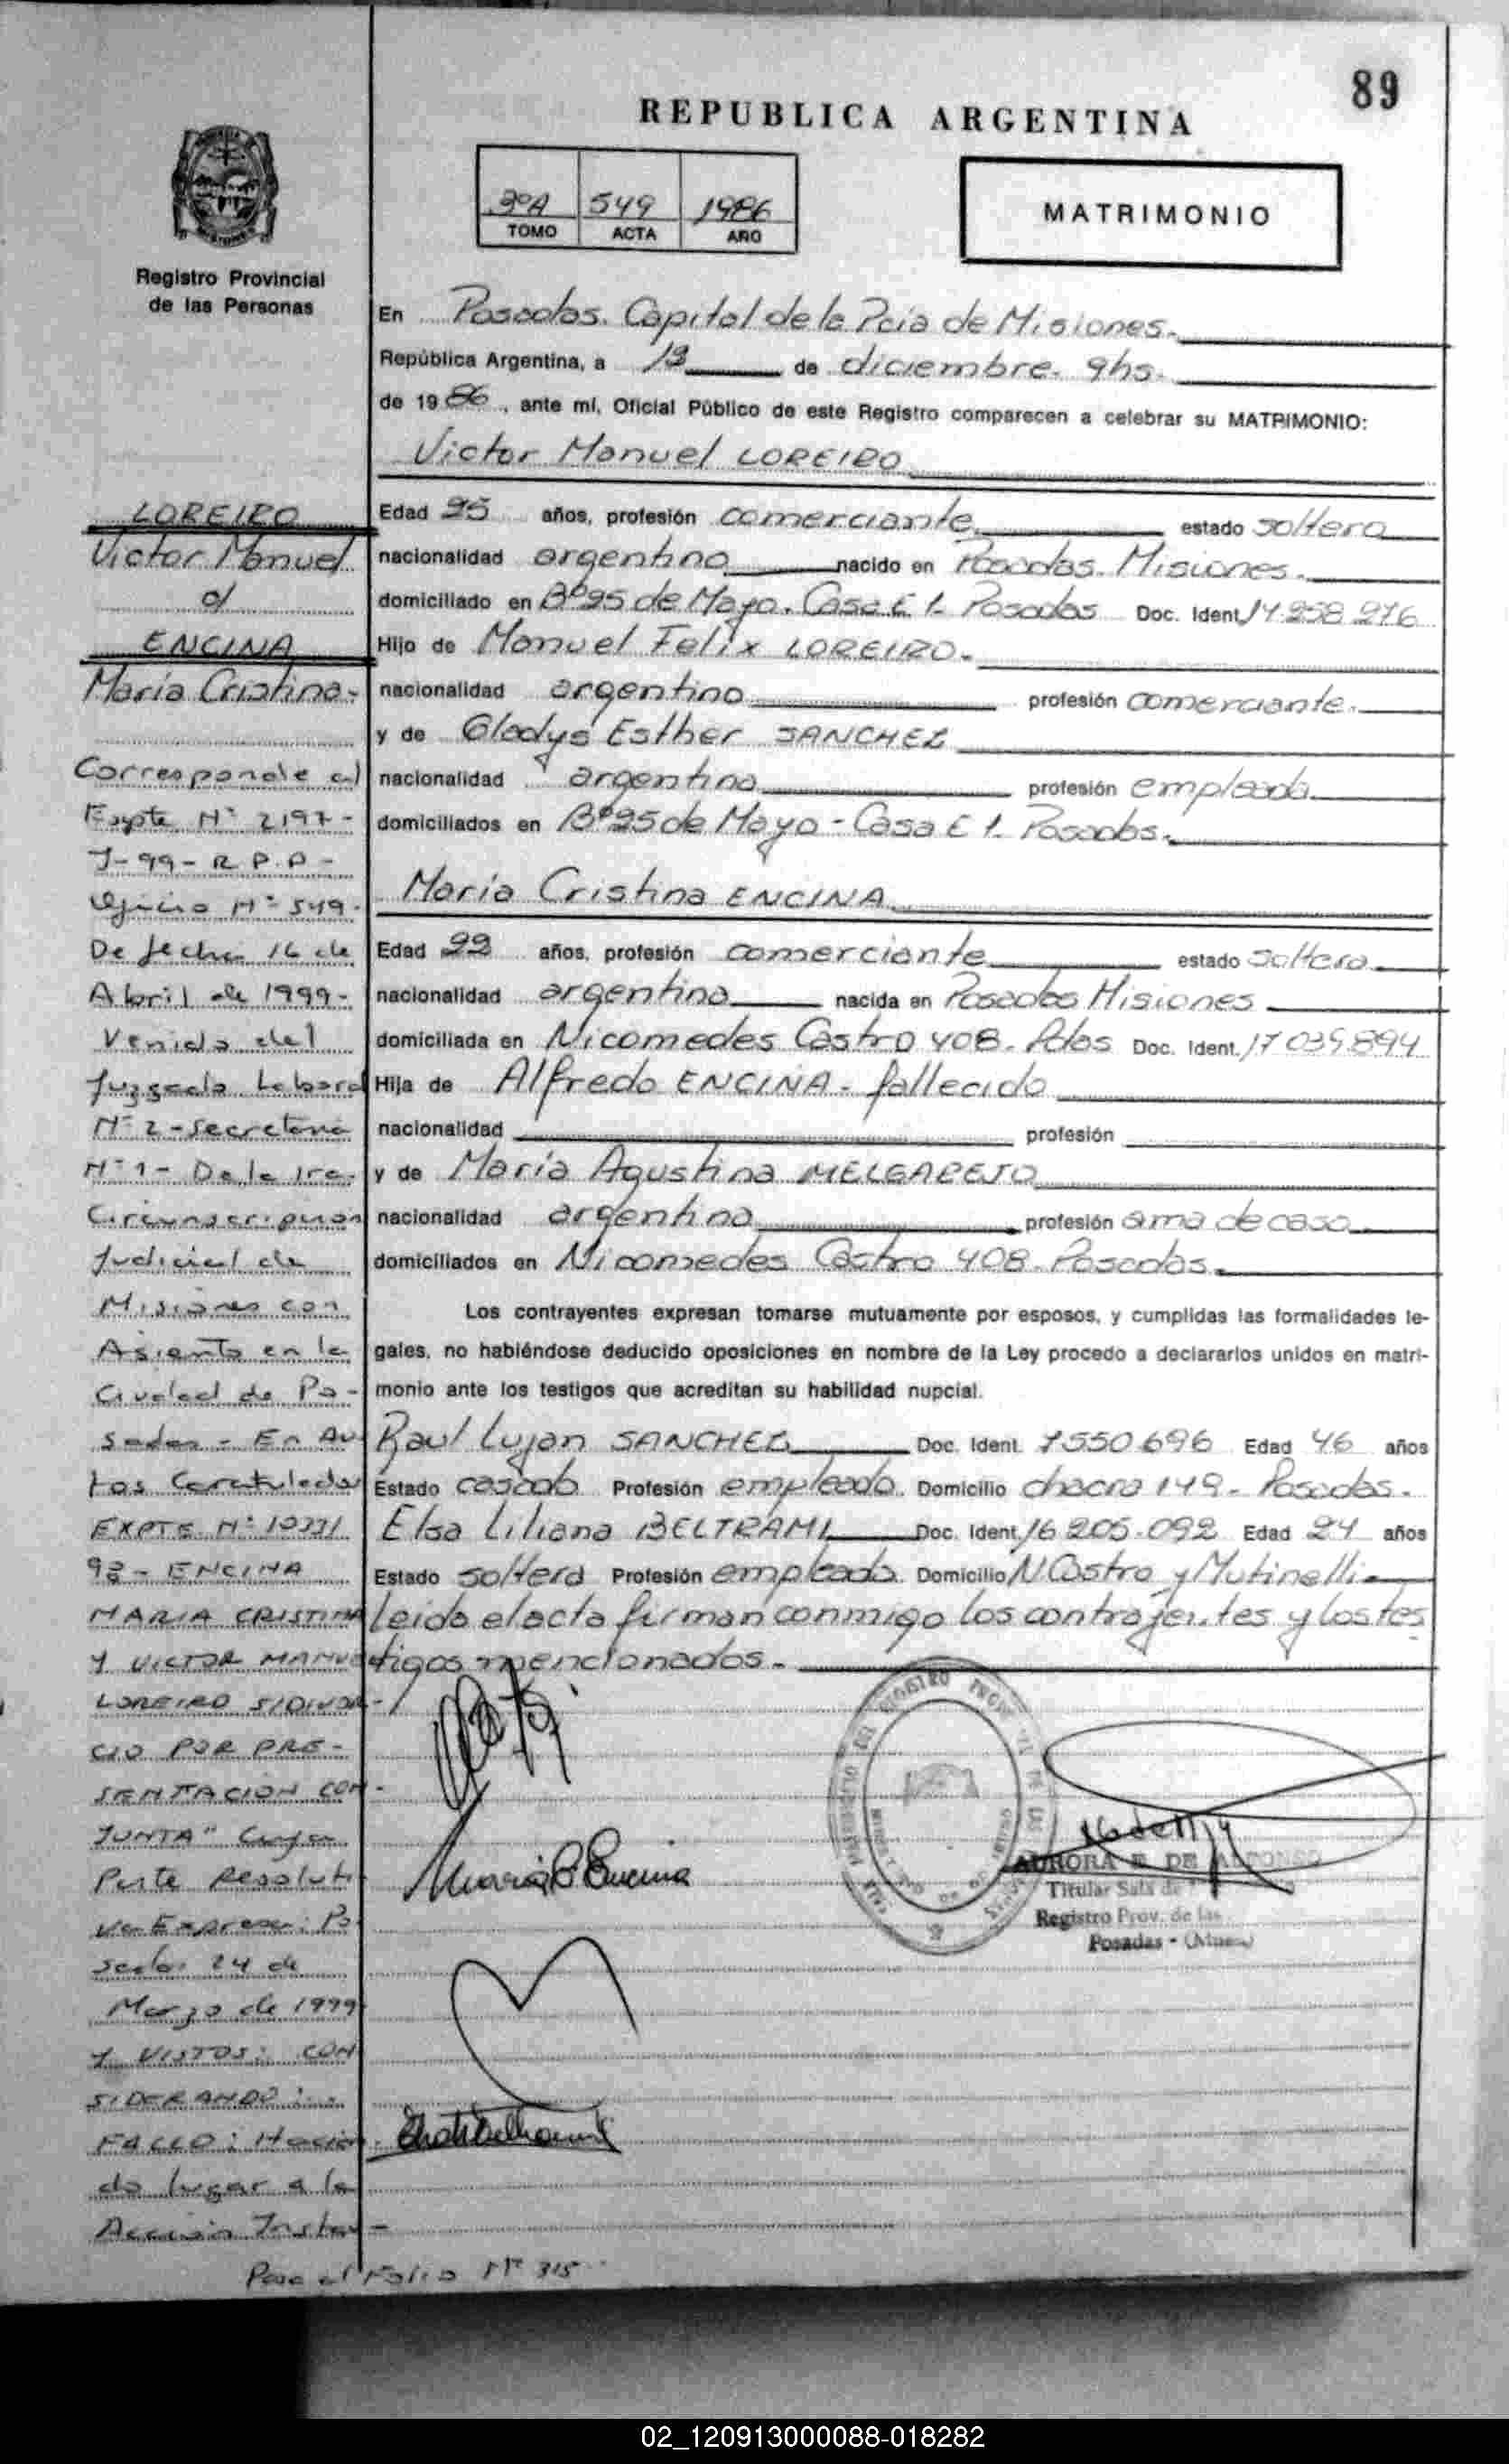 89
REPUBLICA ARGENTINA
3ºA 549 1986
TOMO ACTA AÑO
MATRIMONIO
Registro Provincial
de las Personas
En Posadas. Capital de la Pcia de Misiones.
República Argentina, a de diciembre. 9hs.
de 1986, ante mí, Oficial Público de este Registro comparecen a celebrar su MATRIMONIO:
Victor Manuel LOREIRO
Edad 25 años, profesión comerciante estado soltero
nacionalidad argentino nacido en Posadas. Misiones.
domiciliado en Bº25 de Mayo. Casa E 1. Posadas Doc. Ident. 14.258.276
Hijo de Manuel Felix LOREIRO.
nacionalidad argentino profesión comerciante.
y de Gladys Esther SANCHEZ
nacionalidad argentina profesión empleada
domiciliados en Bº25 de Mayo - Casa E 1. Posadas.
María Cristina ENCINA
Edad 22 años, profesión comerciante estado soltera
nacionalidad argentina nacida en Posadas Misiones
domiciliada en Nicomedes Castro 408. Pdas Doc. Ident. 17.039.894
Hija de Alfredo ENCINA - fallecido
nacionalidad profesión
y de María Agustina MELGAREJO
nacionalidad argentina profesión ama de casa
domiciliados en Nicomedes Castro 408. Posadas.
Los contrayentes expresan tomarse mutuamente por esposos, y cumplidas las formalidades le-
gales, no habiéndose deducido oposiciones en nombre de la Ley procedo a declararlos unidos en matri-
monio ante los testigos que acreditan su habilidad nupcial.
Raul Lujan SANCHEZ Doc. Ident. 7550696 Edad 46 años
Estado casado Profesión empleado. Domicilio chacra 149 - Posadas.
Elsa Liliana BELTRAMI Doc. Ident. 16.205.092 Edad 24 años
Estado soltera Profesión empleada. Domicilio N.Castro y Mutinelli
Leida el acta firman conmigo los contrayentes y los tes
tigos mencionados.
María C Encina
AURORA E. DE ALFONSO
Titular Sala de
Registro Prov. de las
Posadas - (Mnes.)
LOREIRO
Victor Manuel
c/
ENCINA
María Cristina-
Corresponde al
Expte Nº 2197-
J-99-R.P.P-
Oficio Nº 549-
De fecha 16 de
Abril de 1999-
Venido del
Juzgado Laboral
Nº 2-Secretaria
Nº 1- De la 1ra.
Circunscripcion
Judicial de
Misiones con
Asiento en la
Ciudad de Po-
sadas - En Au
tos Caratulados
EXPTE Nº
98 - ENCINA
MARIA CRISTINA
Y VICTOR MANUEL
LOREIRO S/DIVOR-
CIO POR PRE-
SENTACION CON-
JUNTA" Cuya
Parte Resoluti
va Expresa: Po
sadas 24 de
Marzo de 1999
Y VISTOS: CON
SIDERANDO:
FALLO: Hacien-
do lugar a la
Acción Instau-
Pasa al Folio Nº 315
02_120913000088-018282